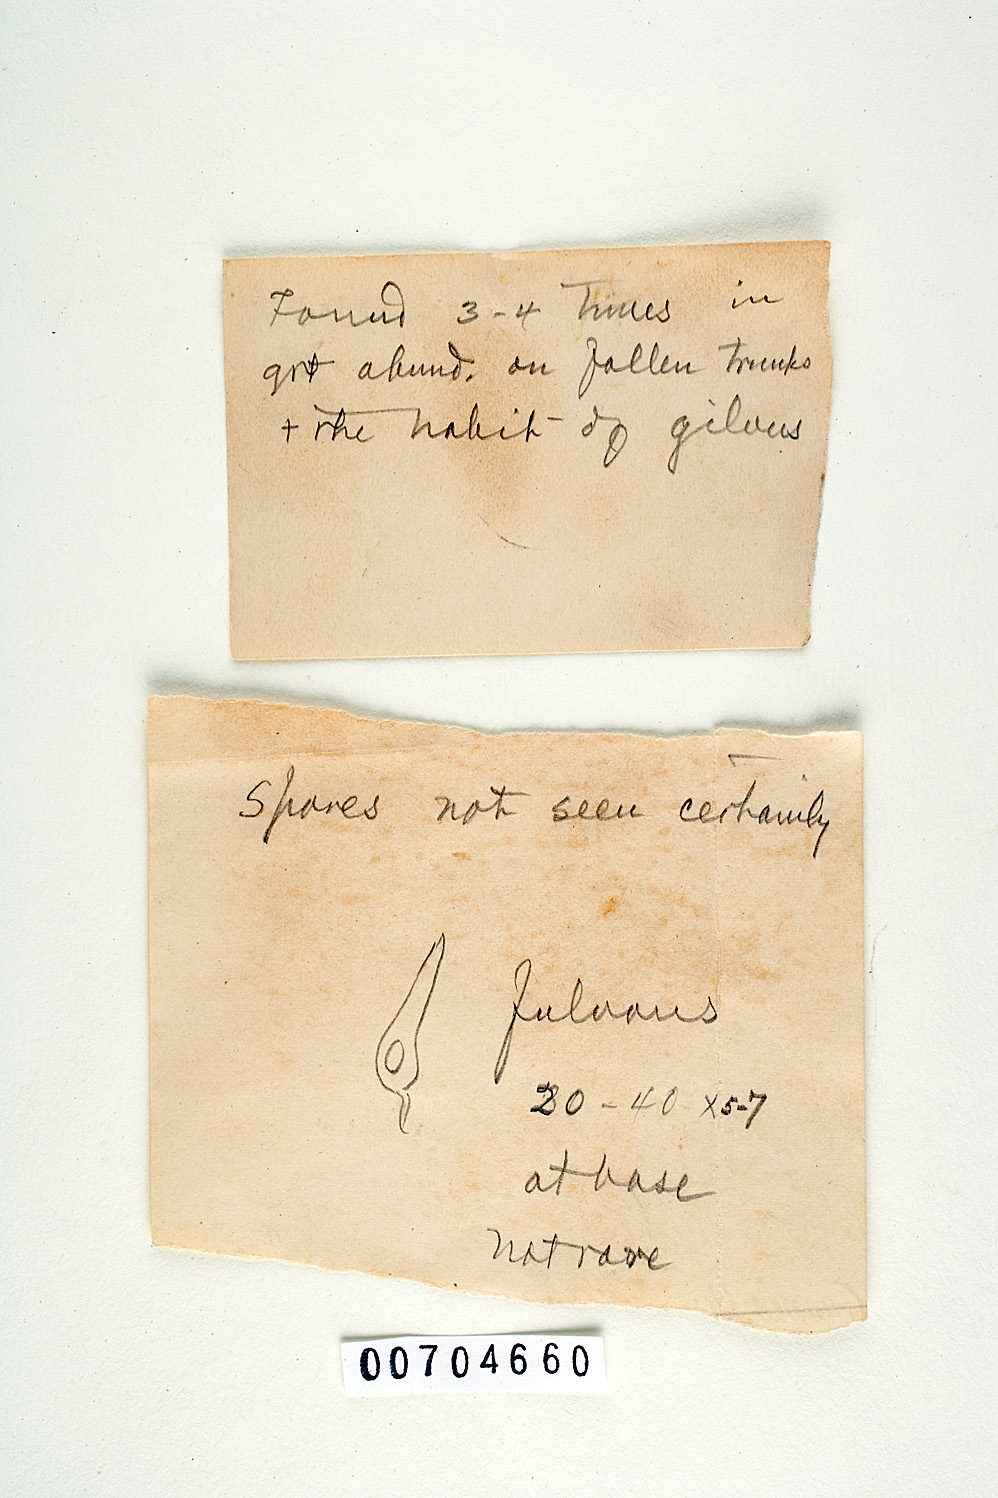 Found 3-4 times in
grt abund. on fallen trunks
+ the habit of gilvus
Spores not seen certainly
fulvous
20-40 x 5-7
at base
not rare
00704660